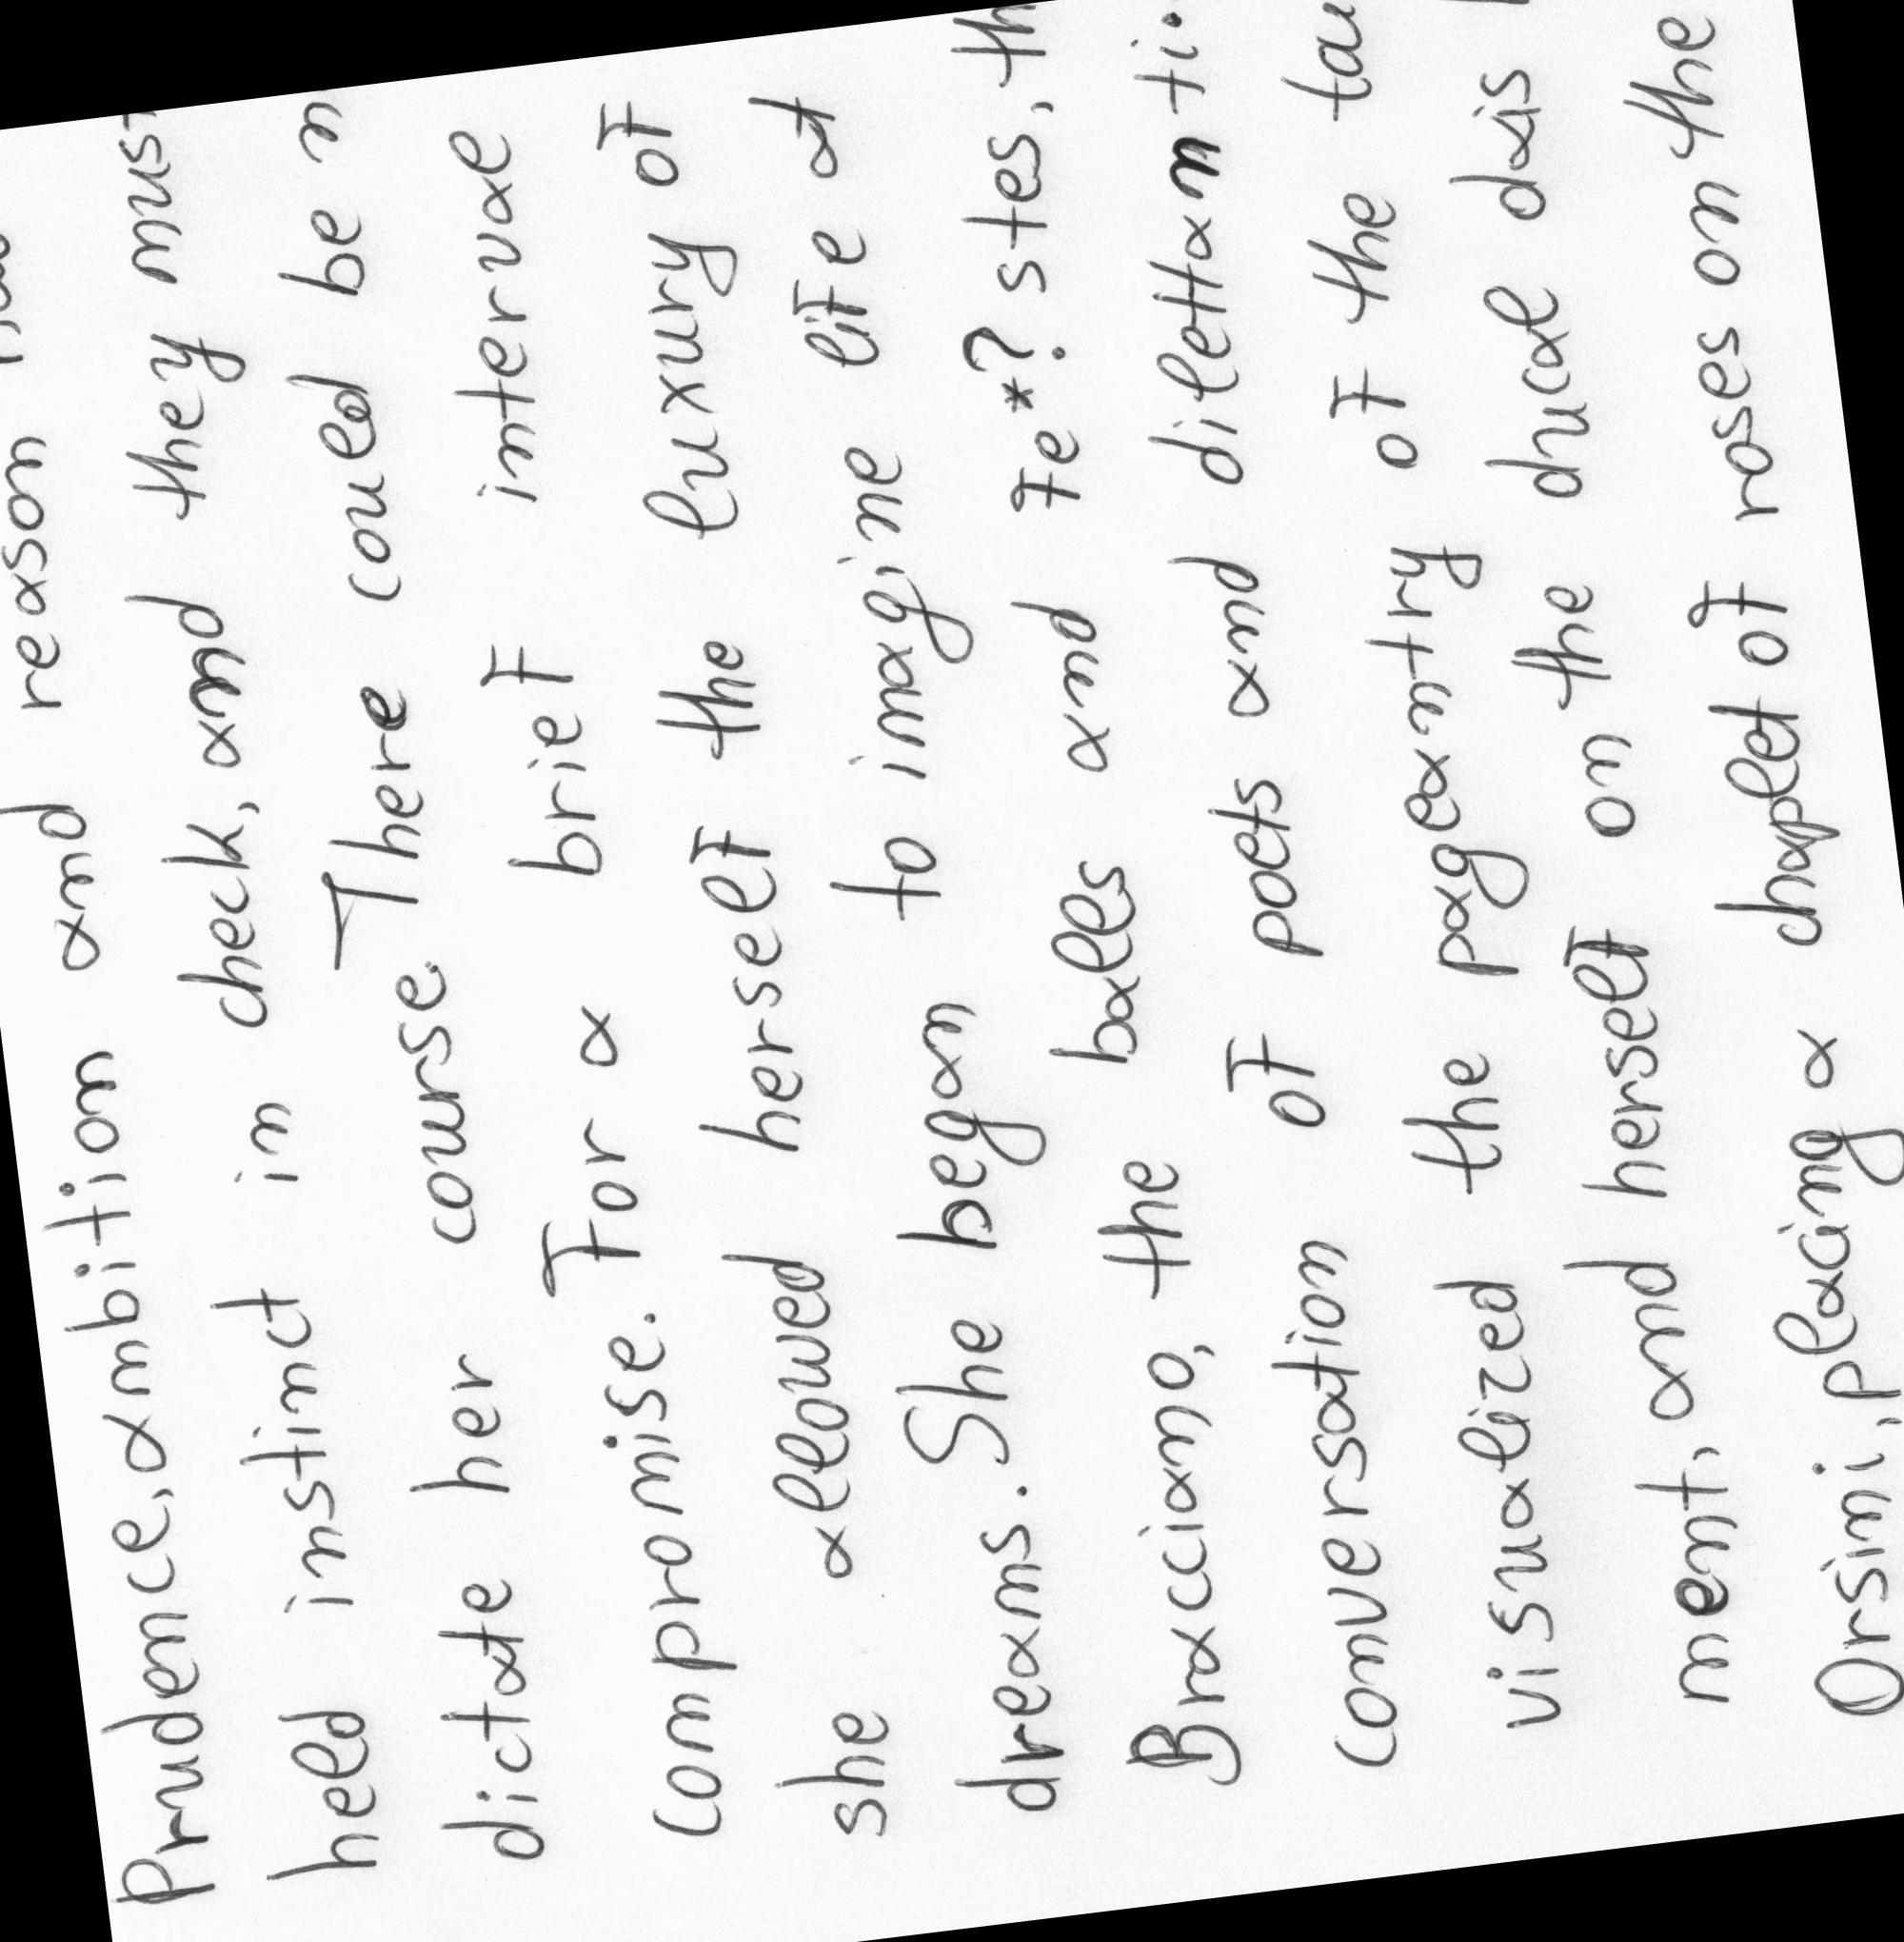 Prudence, ambition and reason
held instinct in check, and they must
dictate her course. There could be
compromise. For a brief interval
she allowed herself the luxury of
dreams. She began to imagine life at
Bracciano, the balls and fe*? stes,
conversation of poets and dilettanti.
visualized the pageantry of the
ment, and herself on the ducal dais
Orsini, placing a chaplet of roses on the